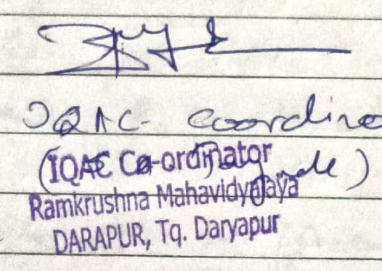 IQAC- coordino
(IQAC Co-ordinator
Ramkrushna Mahavidyalaya
DARAPUR, Tq. Daryapur